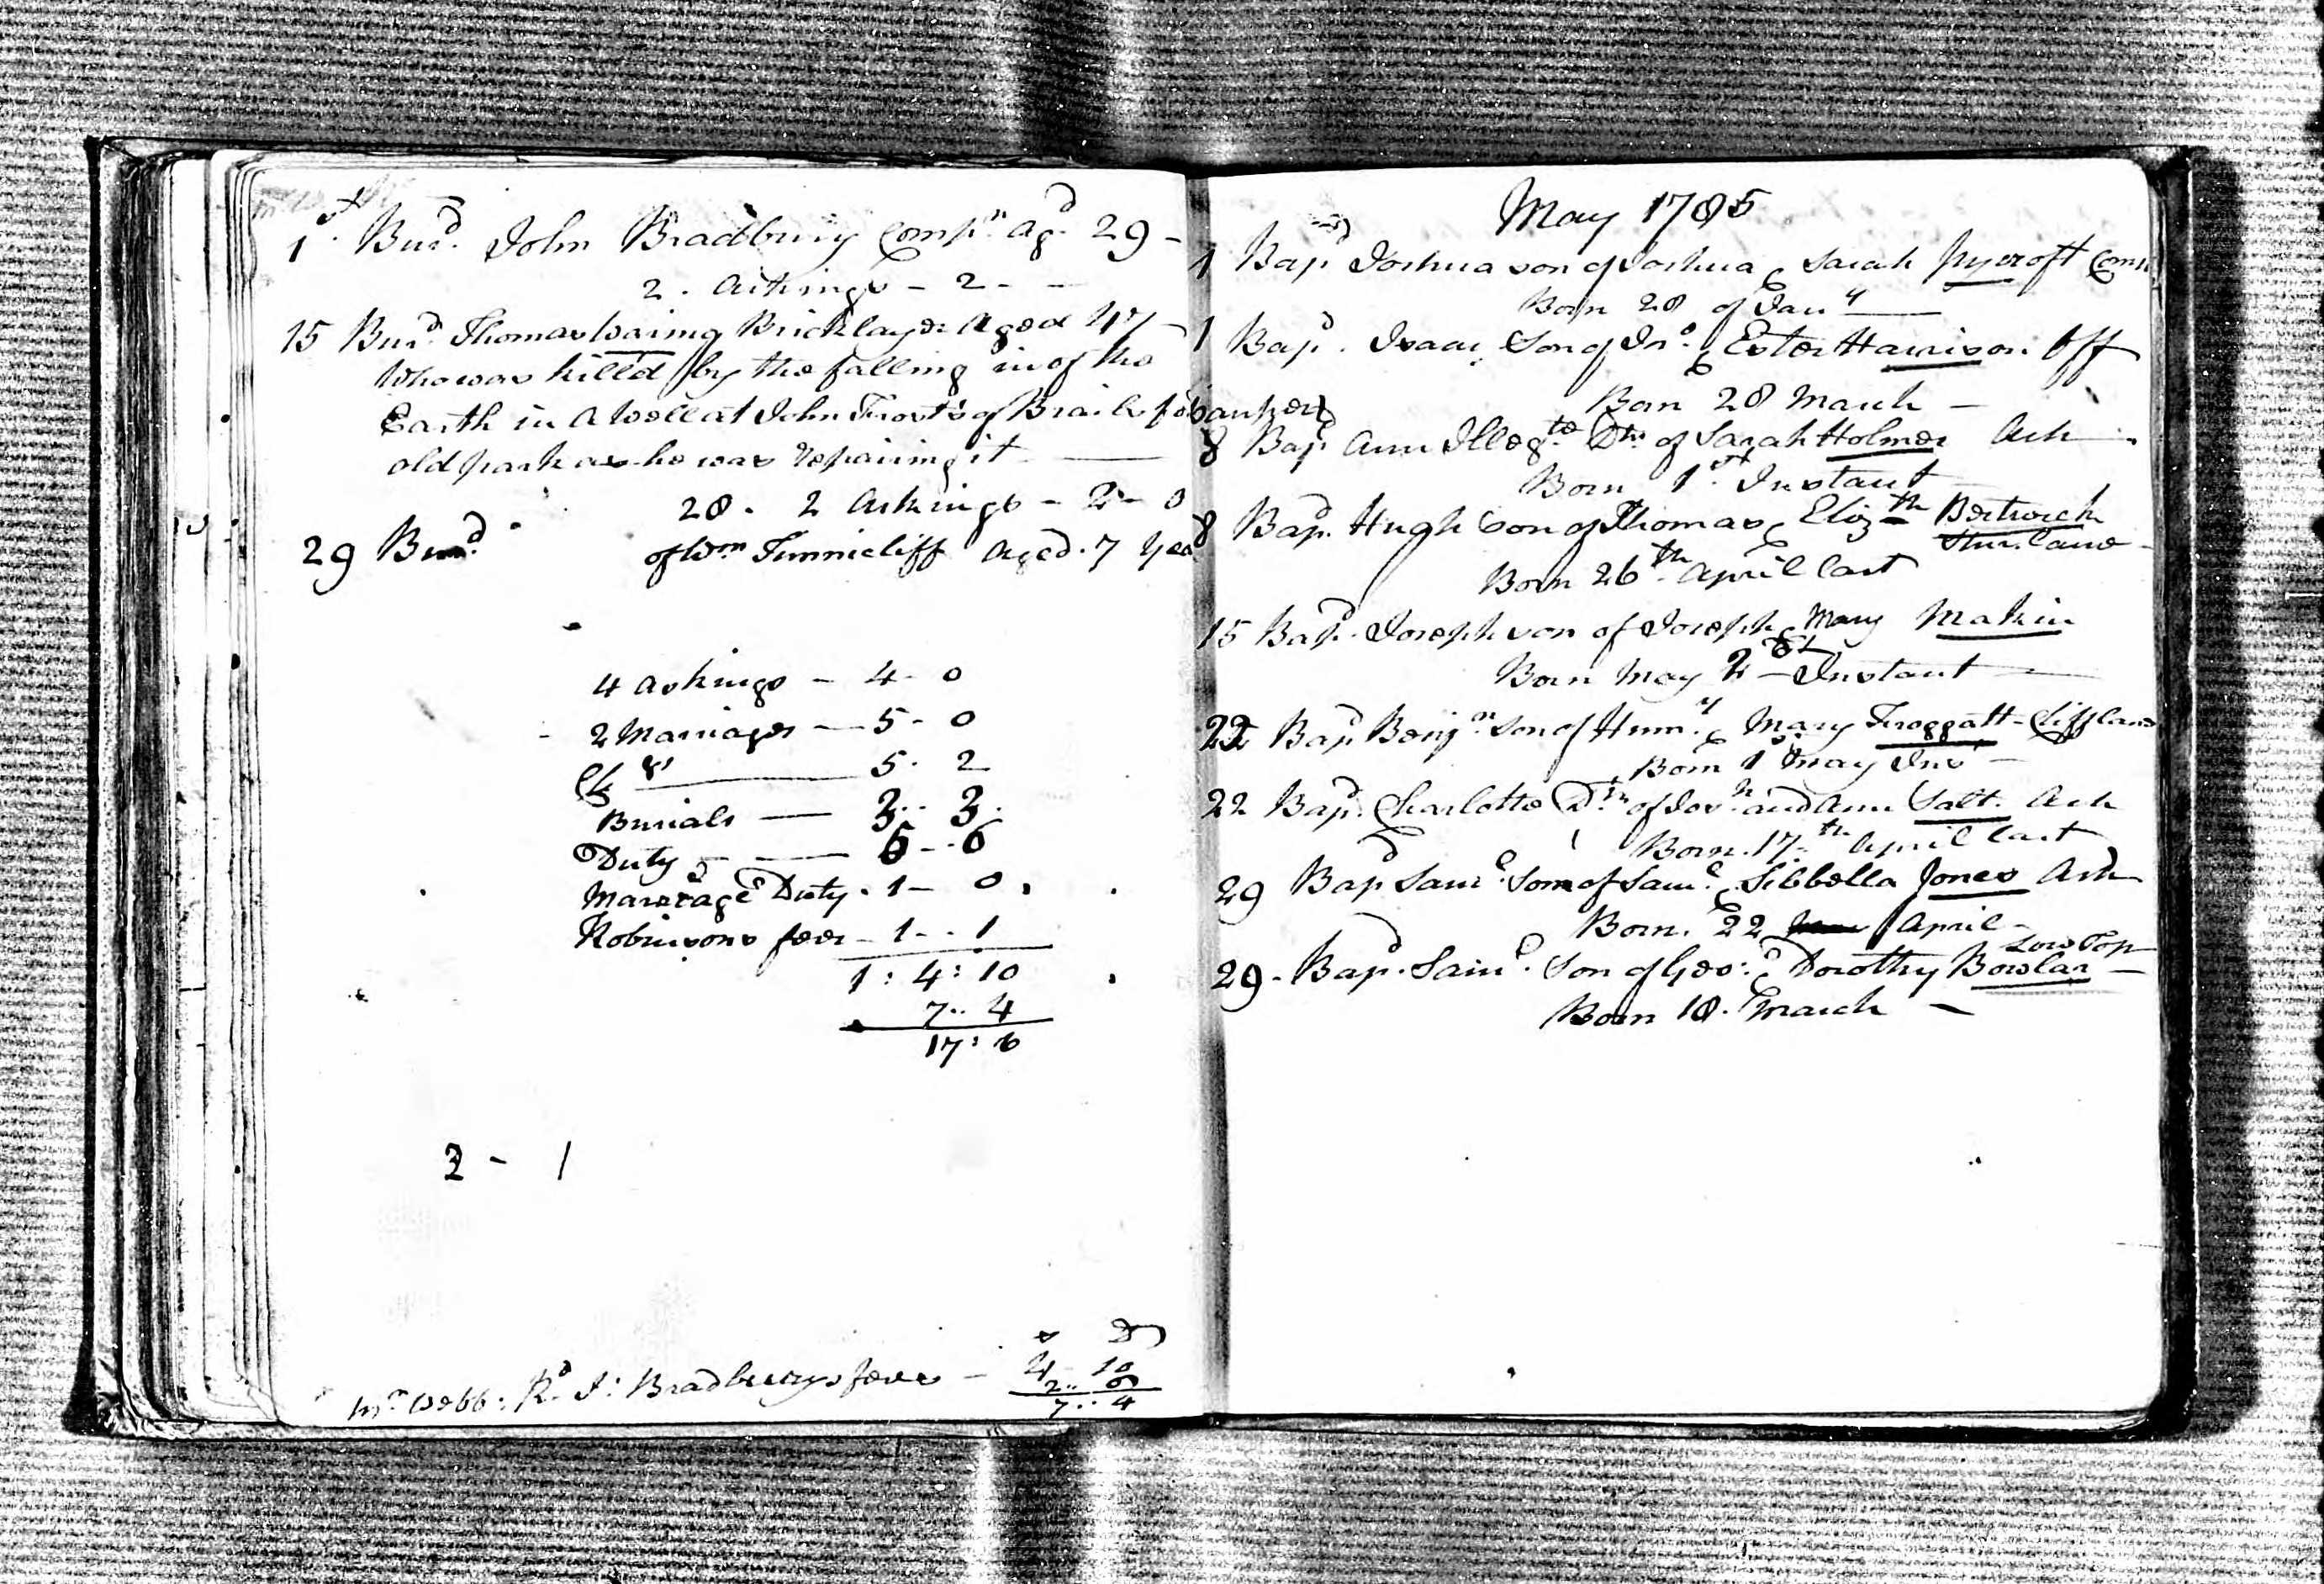 1st Burd. John Bradbury Compn. agd. 29 -
2. Askings - 2 - -
15 Burd. Thomas Waring Bricklayer Aged 47
Who was killd by the falling in of the
Earth in a Well at John Frost's of
old park as he was repairing it
28. 2 Askings - 2 - 0
29 Burd. of Wm Tunnicliff aged. 7 yea
4 askings - 4 - 0
2 Marriages - 5 - 0
5 - 2
Burials - 3 .. 3.
Duty - 6 - 6
Marriage Duty . 1 - 0.
Robinsons fees - 1 - . 1
1 : 4 : 10
7 .. 4
17 : 6
2 - 1
s D
4 .. 10
2 .. 6
Mr Webb: Rd J: Bradburys fees -
7 .. 4
May 1785
1 Bapd Joshua son of Joshua & Sarah Rycroft Com
Born 28 of Jany
1 Bapd. Isaac Son of Jno. & Ester Harrison Off
Born 28 March -
8 Bapd Ann Illegte Dtr. of Sarah Holmes Ash
Born 1st. Instant
8 Bapd. Hugh Son of Thomas & Elizth Bertwich
Born 26th April last
15 Bapd. Joseph son of Joseph & Mary Makin
Born May 2 Instant
22 Bapd Benjn. son of Humy. & Mary Froggatt - Cliffland
Born 1st May Ins
22 Bapd. Charlotte Dtr of Josh and Ann Salt. Ash
Born. 17th April last
29 Bapd Saml. Son of Saml. & Sibbella Jones Ash
Born. 22 April -
Low Top
29 - Bapd. Saml. Son of Geo: & Dorothy Bowlar -
Born 18. March -